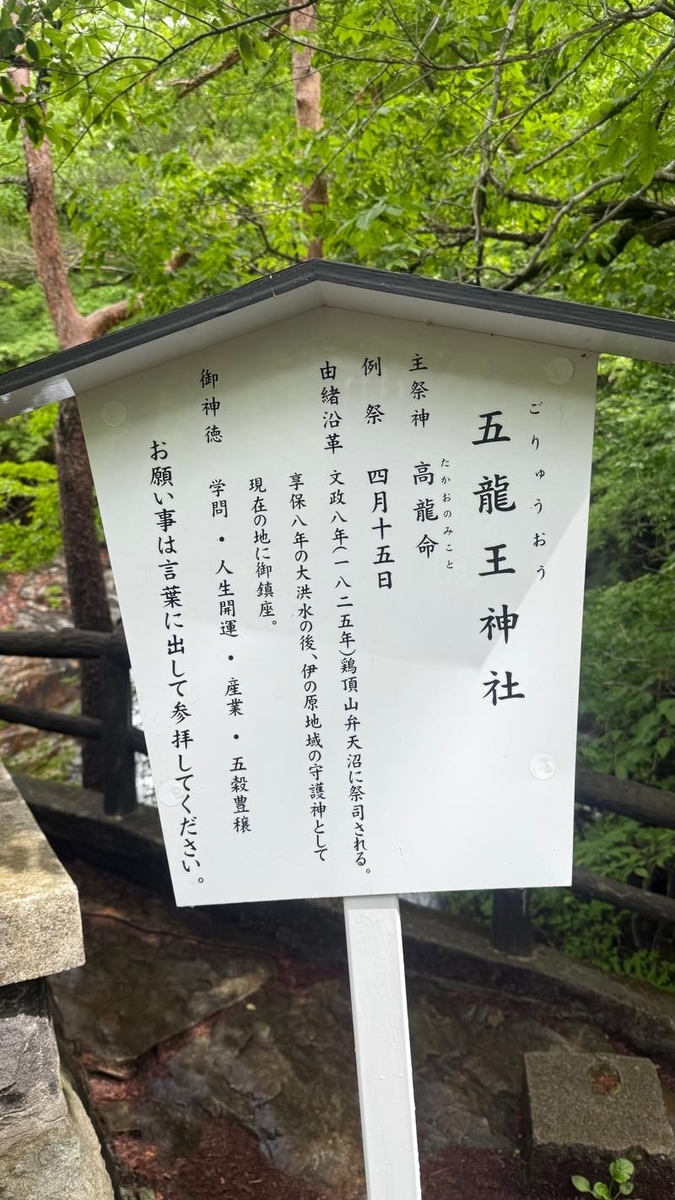 ごりゅうおう
五龍王神社
たかおのみこと
主祭神 高龍命
例祭 四月十五日
由緒沿革 文政八年(一八二五年)鶏頂山弁天沼に祭司される。
享保八年の大洪水の後、伊の原地域の守護神として
現在の地に御鎮座。
御神徳 学問・人生開運・産業・五穀豊穣
お願い事は言葉に出して参拝してください。